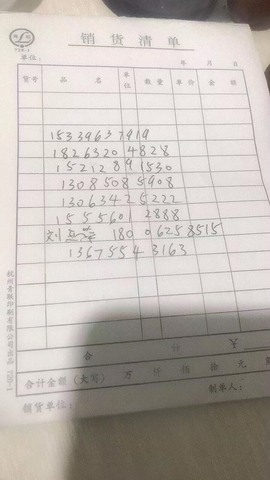 销货清单
单位： 年 月 日
货号 品名 单位 数量 单价 金额
15339637919
18263204828
15212891530
13085085908
13063425222
15556012888
刘 18006258515
13675543163
合计 ￥
合计金额（大写） 万 仟 佰 拾 元
销货单位： 制单人：
杭州青联印刷有限公司出品